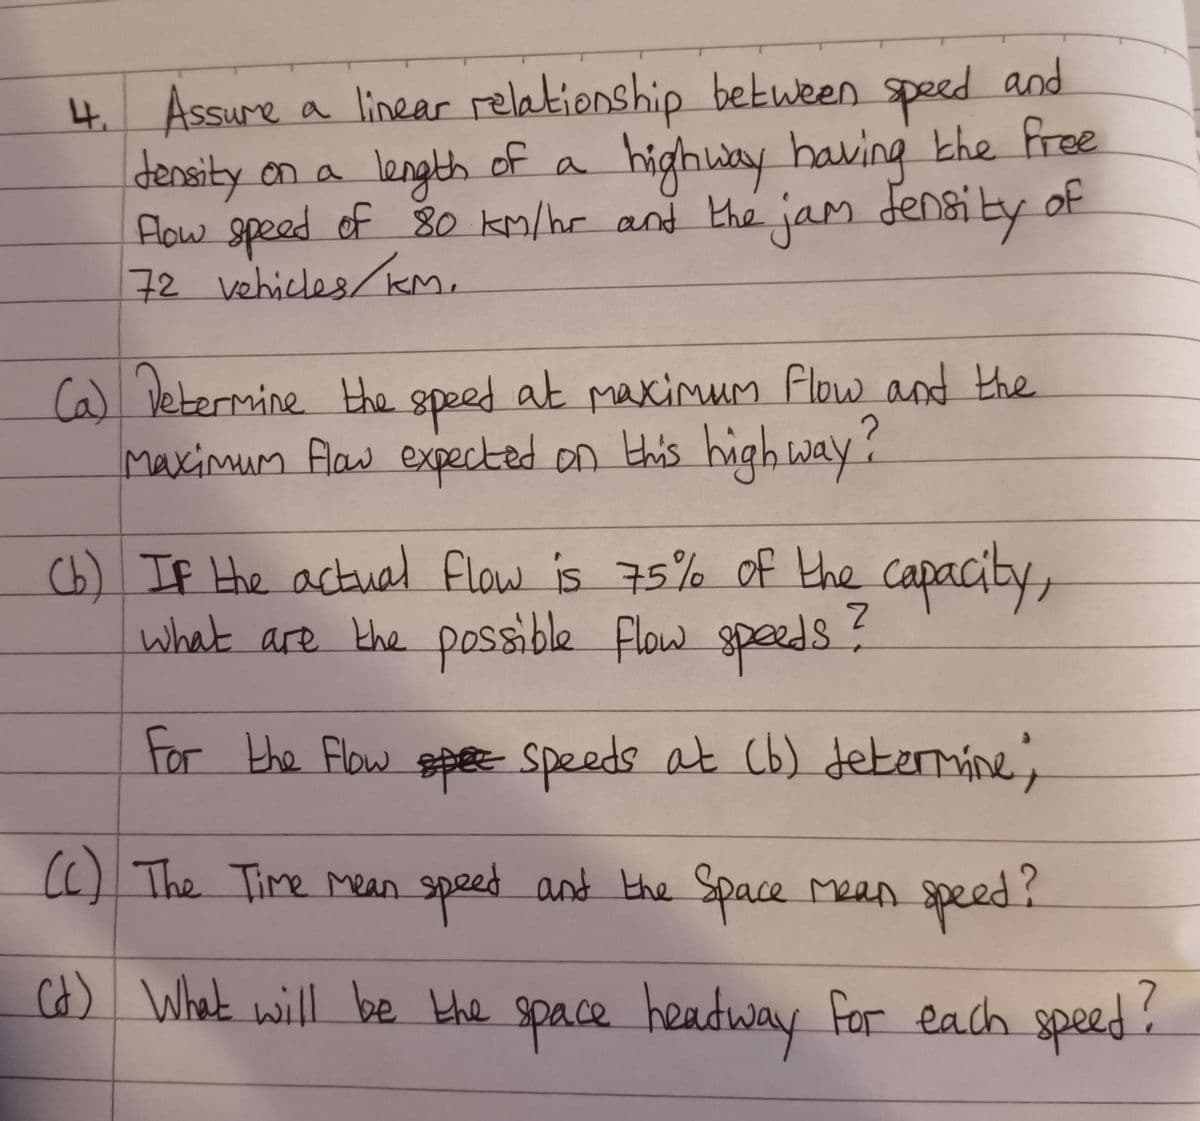 4. Assume a linear relationship between speed and
density on a length of a highway having the free
flow speed of 80 km/hr and the jam density of
72 vehicles/km.
(a) Determine the speed at maximum flow and the
maximum flow expected on this highway?
(b) If the actual flow is 75% of the capacity,
what are the possible flow speeds?
For the flow spee speeds at (b) determine;
(c) The Time mean speed and the Space mean speed?
(d) What will be the space headway for each speed?